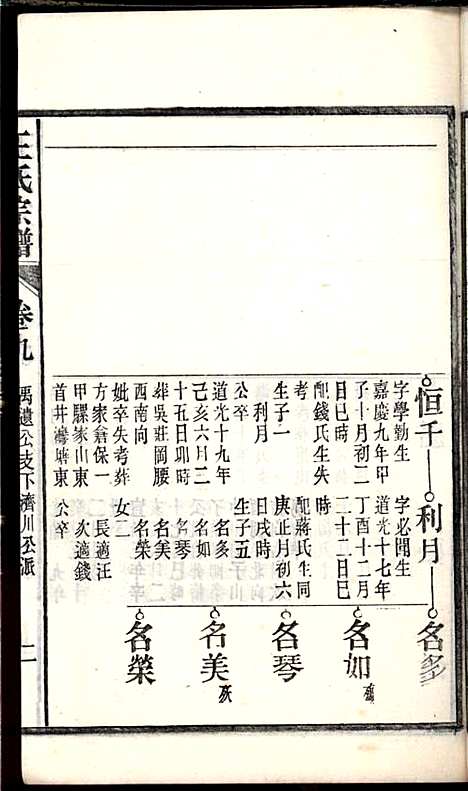 恒千
字學勤生
嘉慶九年甲
子十月初二
日巳時
配錢氏生失
考
生子一
利月
公卒
道光十九年
己亥六月三
十五日卯時
葬吳莊岡腰
西南向
妣卒失考葬
方家倉保一
甲騾家山東
首井灣塘東
利月
字必開生
道光十七年
丁酉十二月
二十五日巳
時
配蔣氏生同
庚正月初六
日戌時
生子五
名多
名如
名琴
名美
名榮
女二
長適汪
次適錢
公卒
名多
名如
名琴
名美
名榮
王氏宗譜
卷九
禹遺公支下濟川公派
二